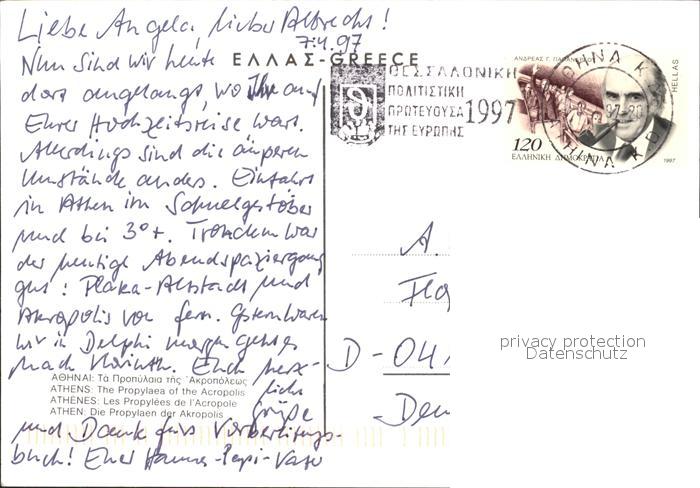 Liebe Angela, lieber Albrecht!
7.4.97
Nun sind wir heute
dort angelangt, wo Ihr auf
Eurer Hochzeitsreise wart.
Allerdings sind die äuperen
Umstände anders. Einfahrt
in Athen im Schneegestöber
und bei 3°+. Trotzdem war
der heutige Abendspaziergang
gut! Plaka-Altstadt und
Akropolis von fern. Gestern waren
wir in Delphi morgen geht es
nach Korinth. Euch herz-
liche
Grüße
und Dank fürs Vorbereitungs-
buch! Euer
ΕΛΛΑΣ-GREECE
ΘΕΣΣΑΛΟΝΙΚΗ
ΠΟΛΙΤΙΣΤΙΚΗ
ΠΡΩΤΕΥΟΥΣΑ 1997
ΤΗΣ ΕΥΡΩΠΗΣ
ΑΝΔΡΕΑΣ Γ. ΠΑΠΑΝΔΡΕΟΥ
HELLAS
120
ΕΛΛΗΝΙΚΗ ΔΗΜΟΚΡΑΤΙΑ
1997
A.
D-04
privacy protection
Datenschutz
ΑΘΗΝΑΙ: Τὰ Προπύλαια τῆς Ἀκροπόλεως
ATHENS: The Propylaea of the Acropolis
ATHÈNES: Les Propylées de l'Acropole
ATHEN: Die Propylaen der Akropolis